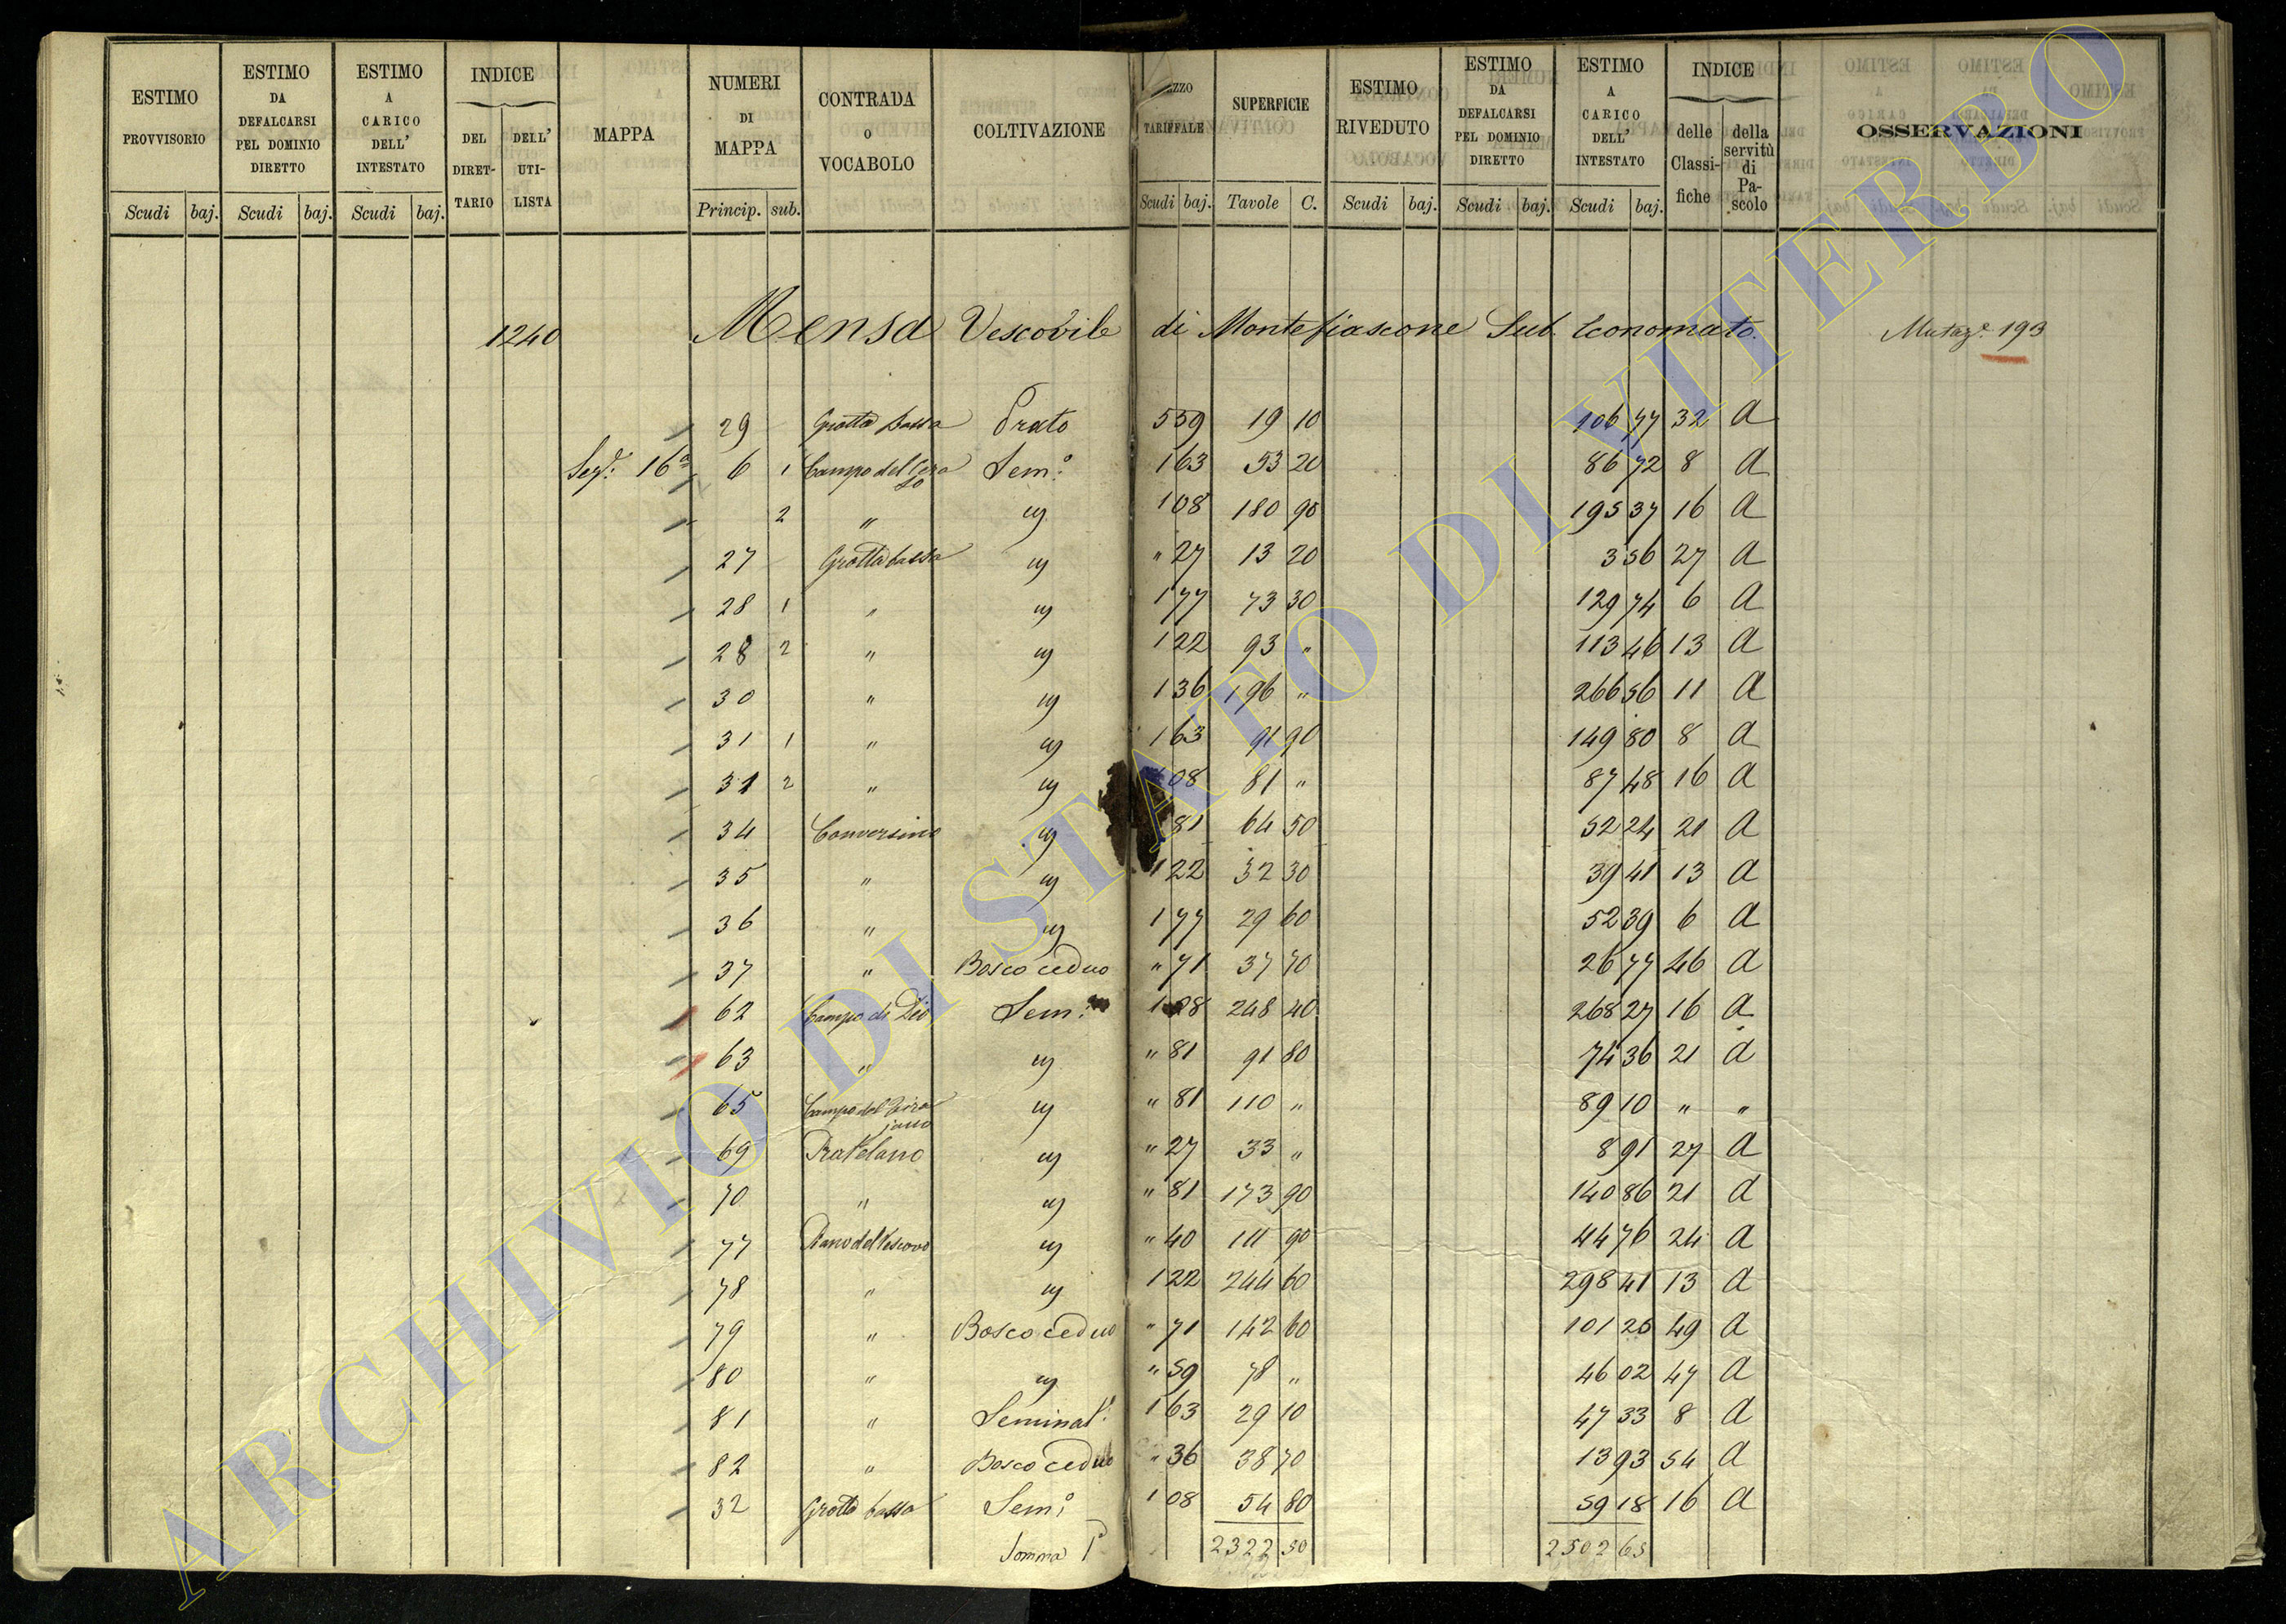 ESTIMO PROVVISORIO | ESTIMO DA DEFALCARSI PEL DOMINIO DIRETTO | ESTIMO A CARICO DELL' INTESTATO | INDICE DEL DIRETTARIO | DELL' UTILISTA | MAPPA | NUMERI DI MAPPA | CONTRADA O VOCABOLO | COLTIVAZIONE | TARIFFALE | SUPERFICIE | ESTIMO RIVEDUTO | ESTIMO DA DEFALCARSI PEL DOMINIO DIRETTO | ESTIMO A CARICO DELL' INTESTATO | INDICE delle Classifiche | della servitù di Pascolo | OSSERVAZIONI
Scudi baj. Scudi baj. Scudi baj. Princip. sub. Scudi baj. Tavole C. Scudi baj. Scudi baj. Scudi baj.
1240 Mensa Vescovile di Montefiascone Sub. Economato. Mutaz.e 193
29 Grotta bassa Prato 5 59 19 10 106 77 32 A
Seg.e 16a 6 1 Campo del Ceraso Sem.o 1 63 53 20 86 72 8 A
2 " " 1 08 180 90 195 37 16 A
27 Grotta bassa " " 27 13 20 3 56 27 A
28 1 " " 1 77 73 30 129 74 6 A
28 2 " " 1 22 93 " 113 46 13 A
30 " " 1 36 196 " 266 56 11 A
31 1 " " 1 63 91 90 149 80 8 A
31 2 " " 08 81 " 87 48 16 A
34 Conversino " 81 64 50 52 24 21 A
35 " " 1 22 32 30 39 41 13 A
36 " " 1 77 29 60 52 39 6 A
37 " Bosco ceduo " 71 37 70 26 77 46 A
62 Campo di Dio Sem.o 1 08 248 40 268 27 16 A
63 " " " 81 91 80 74 36 21 A
65 Campo del " " 81 110 " 89 10 " "
69 Pratelano " " 27 33 " 8 91 27 A
70 " " " 81 173 90 140 86 21 A
77 Piano del Vescovo " " 40 111 90 44 76 24 A
78 " " 1 22 244 60 298 41 13 A
79 " Bosco ceduo " 71 142 60 101 25 49 A
80 " " " 59 78 " 46 02 47 A
81 " Seminat.o 1 63 29 10 47 33 8 A
82 " Bosco ceduo " 36 38 70 13 93 54 A
32 Grotta bassa Sem.o 1 08 54 80 59 18 16 A
Somma 2322 50 2502 65
ARCHIVIO DI STATO DI VITERBO